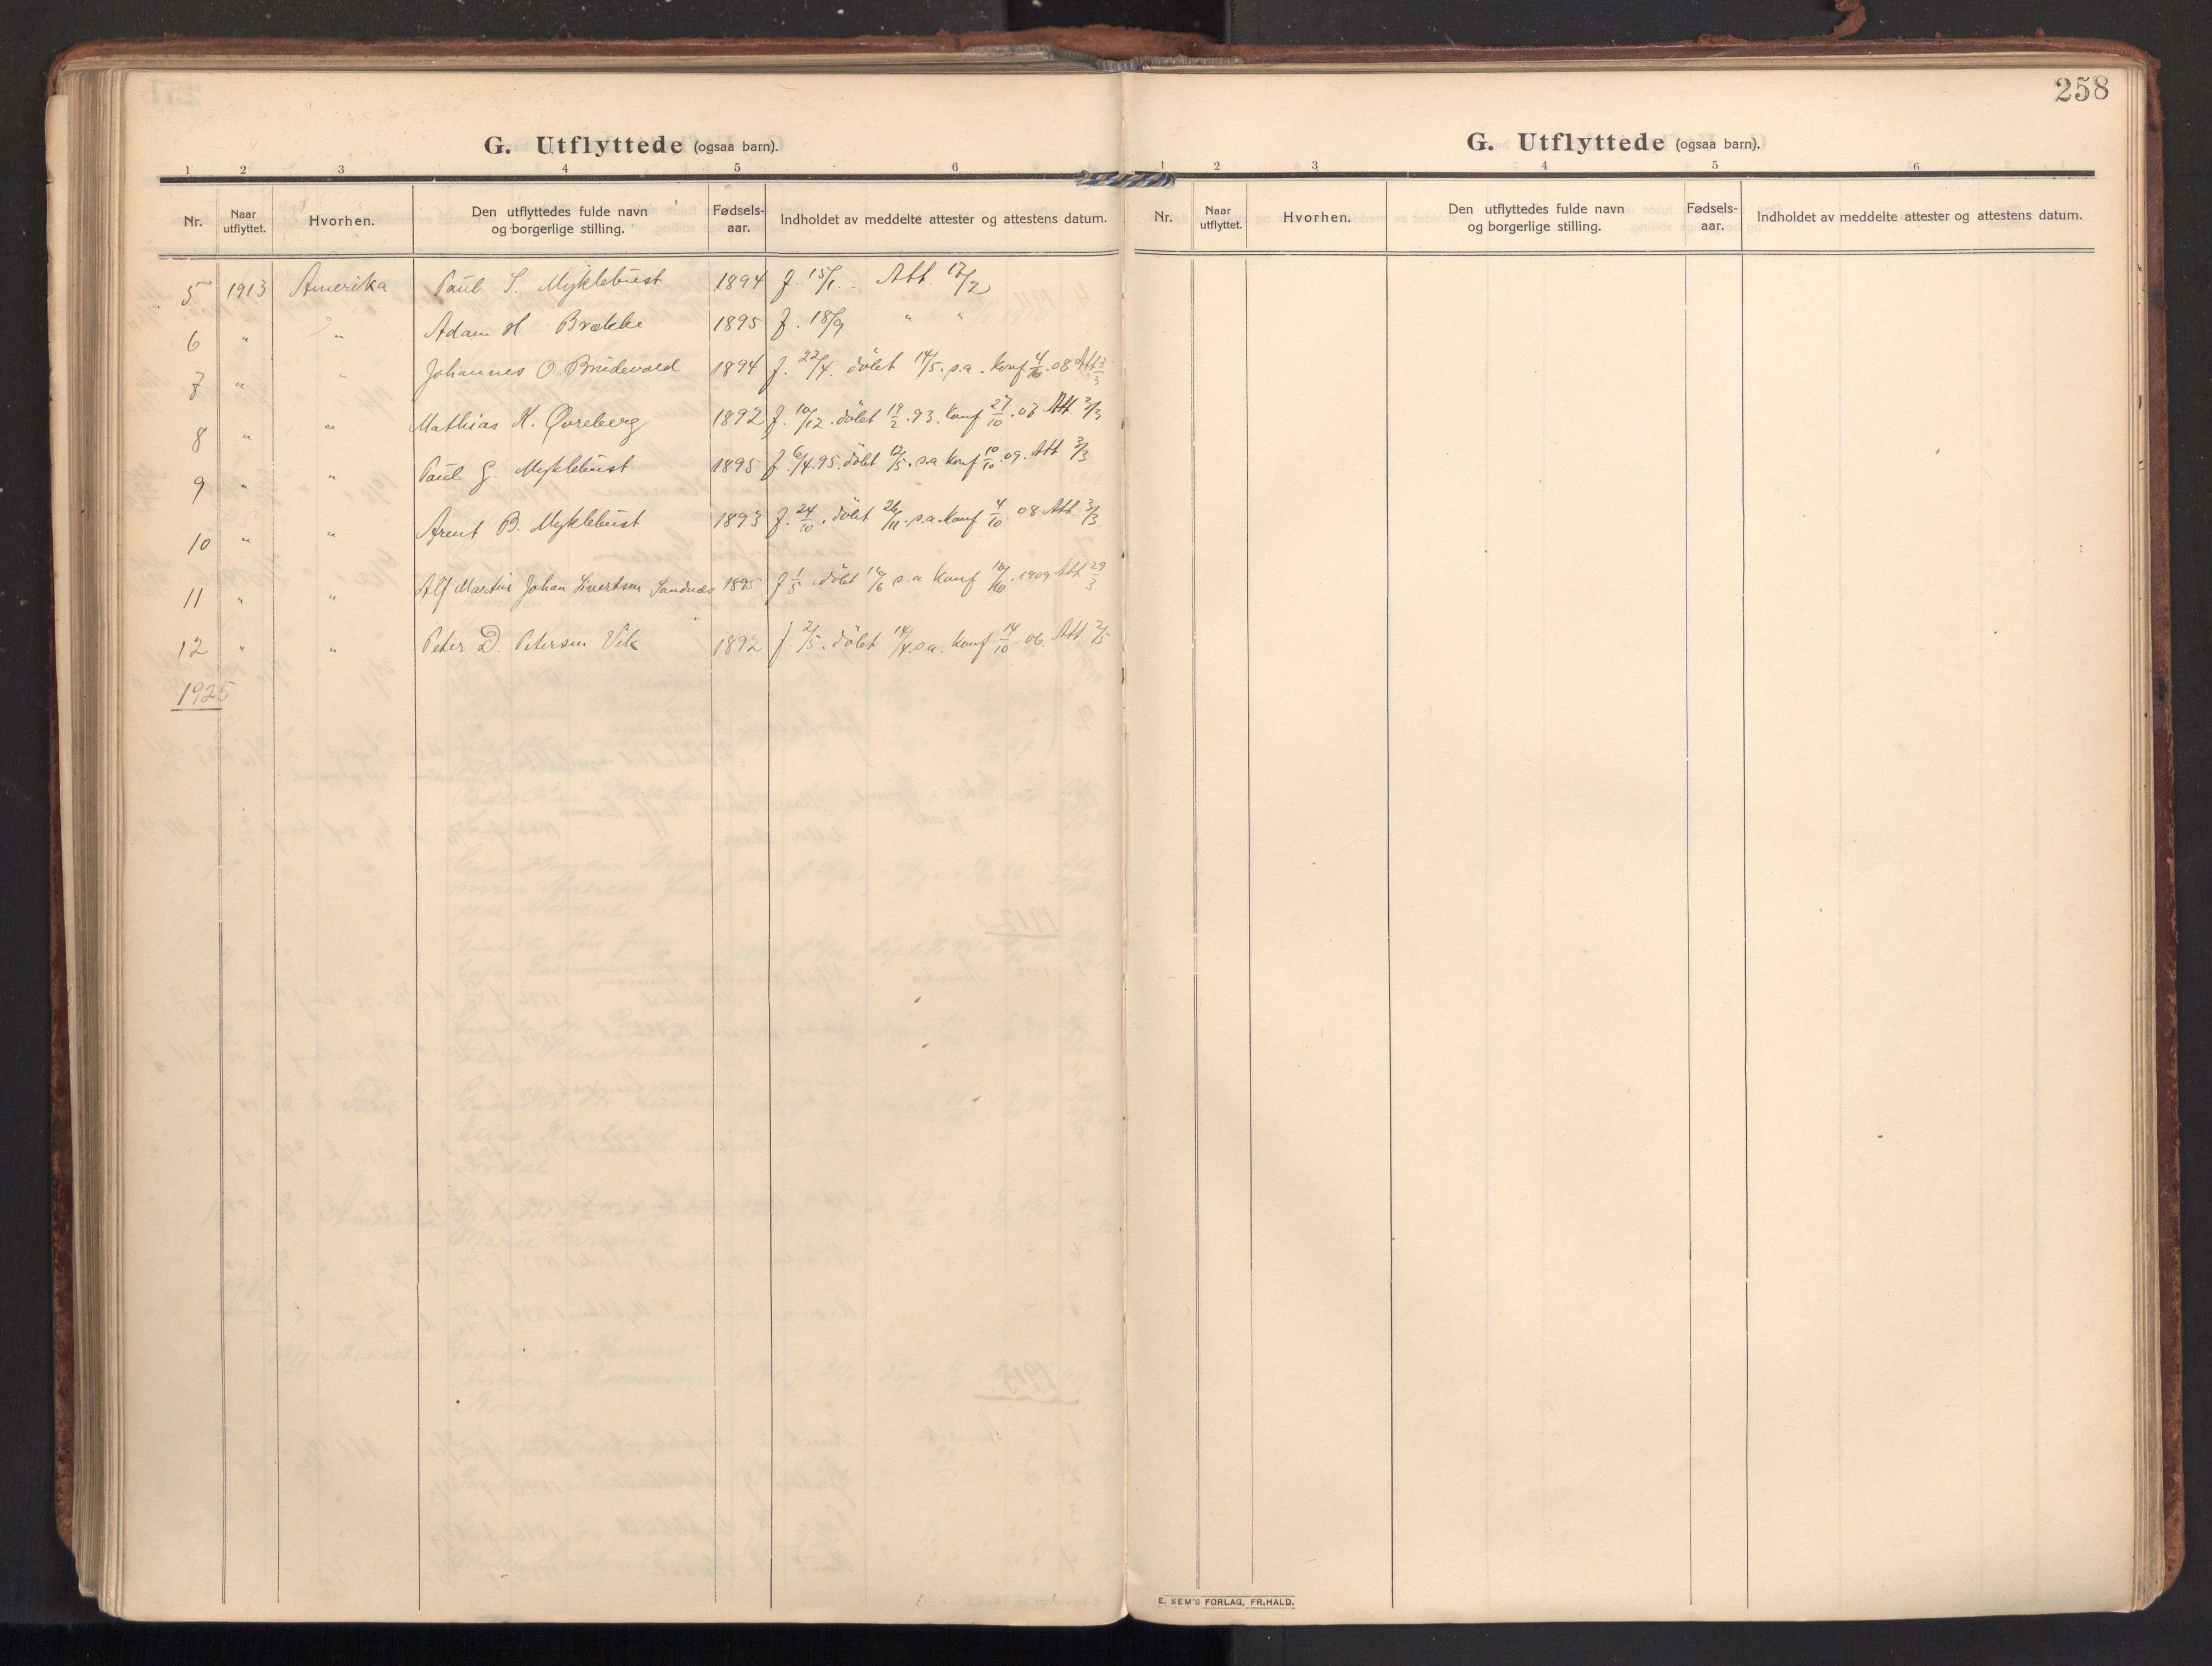 G. Utflyttede (ogsaa barn).
1 2 3 4 5 6
Nr. Naar utflyttet. Hvorhen. Den utflyttedes fulde navn og borgerlige stilling. Fødsels-aar. Indholdet av meddelte attester og attestens datum.
5 1913 Amerika Paul S. Myklebust 1894 f. 15/1. Att. 17/2
6 " " Adam H Brække 1895 f. 18/9 " "
7 " " Johannes O. Brudevold 1894 f. 22/4. döbt 14/5. s.a. Konf 4/10.08 Att 3/3
8 " " Mathias K. Øvreberg 1892 f. 10/12. döbt 19/2.93. Konf 27/10.07 Att 3/3
9 " " Paul G. Myklebust 1895 f. 6/4.95. döbt 12/5. s.a Konf 10/10.09. Att 3/3
10 " " Arent B. Myklebust 1893 f. 24/10. döbt 26/11. s.a. Konf 4/10. 08 Att. 3/3.
11 " " Alf Martin Johan Sivertsen Sandnes 1895 f 1/5. döbt 16/6 s.a Konf 10/10. 1909 Att 29/3
12 " " Peter D. Petersen Vik 1892 f. 2/5. döbt 14/4. s.a. Konf 14/10. 06. Att 2/5
1925
258
G. Utflyttede (ogsaa barn).
1 2 3 4 5 6
Nr. Naar utflyttet. Hvorhen. Den utflyttedes fulde navn og borgerlige stilling. Fødsels-aar. Indholdet av meddelte attester og attestens datum.
E. SEM'S FORLAG, FR.HALD.